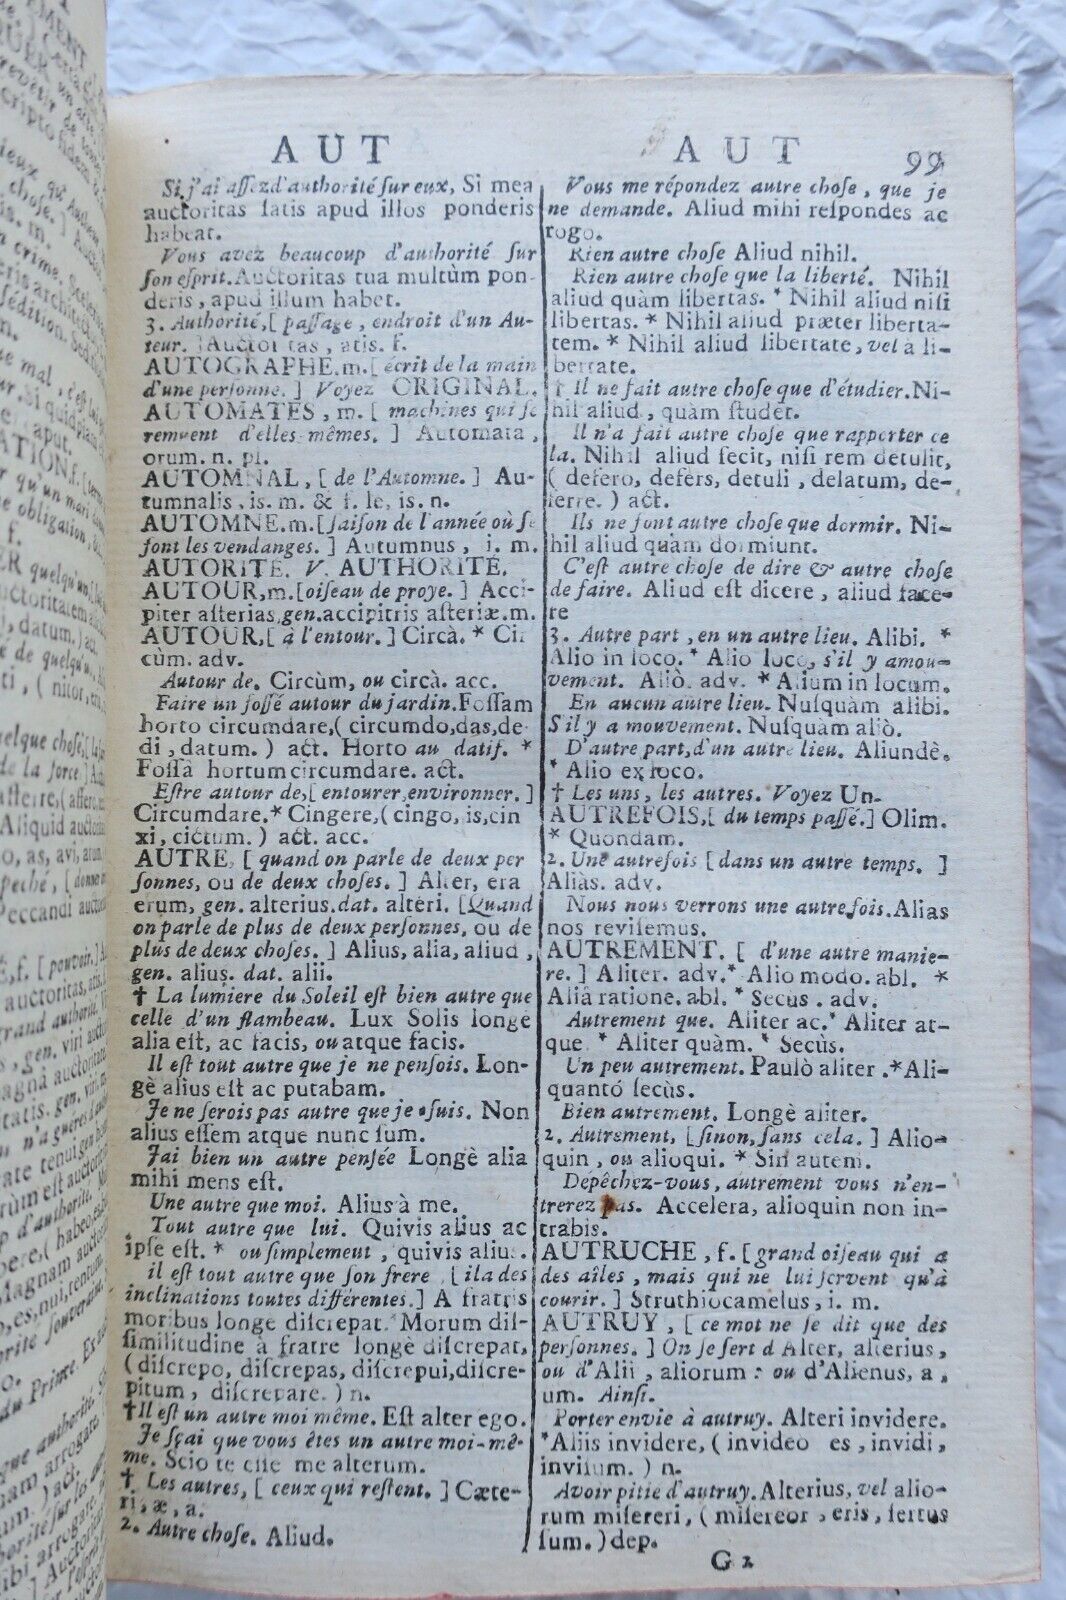 AUT AUT 99
Si j'ai assez d'authorité sur eux, Si mea
auctoritas satis apud illos ponderis
habeat.
Vous avez beaucoup d'authorité sur
son esprit. Auctoritas tua multùm pon-
deris, apud illum habet.
3. Authorité, [ passage, endroit d'un Au-
teur. ] Auctoritas, atis. f.
AUTOGRAPHE. m. [ écrit de la main
d'une personne. ] Voyez ORIGINAL.
AUTOMATES, m. [ machines qui se
remuent d'elles-mêmes. ] Automata,
orum. n. pl.
AUTOMNAL, [ de l'Automne. ] Au-
tumnalis, is. m. & f. le, is. n.
AUTOMNE. m. [ saison de l'année où se
font les vendanges. ] Autumnus, i. m.
AUTORITÉ. V. AUTHORITÉ.
AUTOUR, m. [ oiseau de proye. ] Acci-
piter asterias, gen. accipitris asteriæ. m.
AUTOUR, [ à l'entour. ] Circà. * Cir
cùm. adv.
Autour de. Circùm, ou circà. acc.
Faire un fossé autour du jardin. Fossam
horto circumdare, ( circumdo, das, de-
di, datum. ) act. Horto au datif. *
Fossâ hortum circumdare. act.
Estre autour de, [ entourer, environner. ]
Circumdare. * Cingere, ( cingo, is, cin
xi, cictum. ) act. acc.
AUTRE, [ quand on parle de deux per
sonnes, ou de deux choses. ] Alter, era
erum, gen. alterius. dat. alteri. [ Quand
on parle de plus de deux personnes, ou de
plus de deux choses. ] Alius, alia, aliud,
gen. alius. dat. alii.
† La lumiere du Soleil est bien autre que
celle d'un flambeau. Lux Solis longè
alia est, ac facis, ou atque facis.
Il est tout autre que je ne pensois. Lon-
gè alius est ac putabam.
Je ne serois pas autre que je suis. Non
alius essem atque nunc sum.
J'ai bien un autre pensée Longè alia
mihi mens est.
Une autre que moi. Alius à me.
Tout autre que lui. Quivis alius ac
ipse est. * ou simplement, quivis alius.
il est tout autre que son frere, [ il a des
inclinations toutes différentes. ] A fratris
moribus longe discrepat. Morum dis-
similitudine à fratre longè discrepat,
( discrepo, discrepas, discrepui, discre-
pitum, discrepare. ) n.
† Il est un autre moi même. Est alter ego.
Je sçai que vous êtes un autre moi-mê-
me. Scio te esse me alterum.
† Les autres, [ ceux qui restent. ] Cæte-
ri, æ, a.
2. Autre chose. Aliud.
Vous me répondez autre chose, que je
ne demande. Aliud mihi respondes ac
rogo.
Rien autre chose Aliud nihil.
Rien autre chose que la liberté. Nihil
aliud quàm libertas. * Nihil aliud nisi
libertas. * Nihil aliud præter liberta-
tem. * Nihil aliud libertate, vel à li-
bertate.
† Il ne fait autre chose que d'étudier. Ni-
hil aliud, quàm studet.
Il n'a fait autre chose que rapporter ce
la. Nihil aliud fecit, nisi rem detulit,
( defero, defers, detuli, delatum, de-
ferre. ) act.
Ils ne font autre chose que dormir. Ni-
hil aliud quàm dormiunt.
C'est autre chose de dire & autre chose
de faire. Aliud est dicere, aliud face-
re
3. Autre part, en un autre lieu. Alibi. *
Alio in loco. * Alio loco, s'il y a mou-
vement. Aliò. adv. * Alium in locum.
En aucun autre lieu. Nusquàm alibi.
S'il y a mouvement. Nusquàm aliò.
D'autre part, d'un autre lieu. Aliundè.
* Alio ex loco.
† Les uns, les autres. Voyez Un.
AUTREFOIS, [ du temps passé. ] Olim.
* Quondam.
2. Une autrefois [ dans un autre temps. ]
Aliàs. adv.
Nous nous verrons une autrefois. Alias
nos revisemus.
AUTREMENT. [ d'une autre manie-
re. ] Aliter. adv. * Alio modo. abl. *
Aliâ ratione. abl. * Secus. adv.
Autrement que. Aliter ac. * Aliter at-
que. * Aliter quàm. * Secùs.
Un peu autrement. Paulò aliter. * Ali-
quantó secùs.
Bien autrement. Longè aliter.
2. Autrement, [ sinon, sans cela. ] Alio-
quin, ou alioqui. * Sin autem.
Dépêchez-vous, autrement vous n'en-
trerez pas. Accelera, alioquin non in-
trabis.
AUTRUCHE, f. [ grand oiseau qui a
des aîles, mais qui ne lui servent qu'à
courir. ] Struthiocamelus, i. m.
AUTRUY, [ ce mot ne se dit que des
personnes. ] On se sert d'Alter, alterius,
ou d'Alii, aliorum : ou d'Alienus, a,
um. Ainsi.
Porter envie à autruy. Alteri invidere.
* Aliis invidere, ( invideo es, invidi,
invisum. ) n.
Avoir pitie d'autruy. Alterius, vel alio-
rum misereri, ( misereor, eris, sertus
sum. ) dep.
G 2